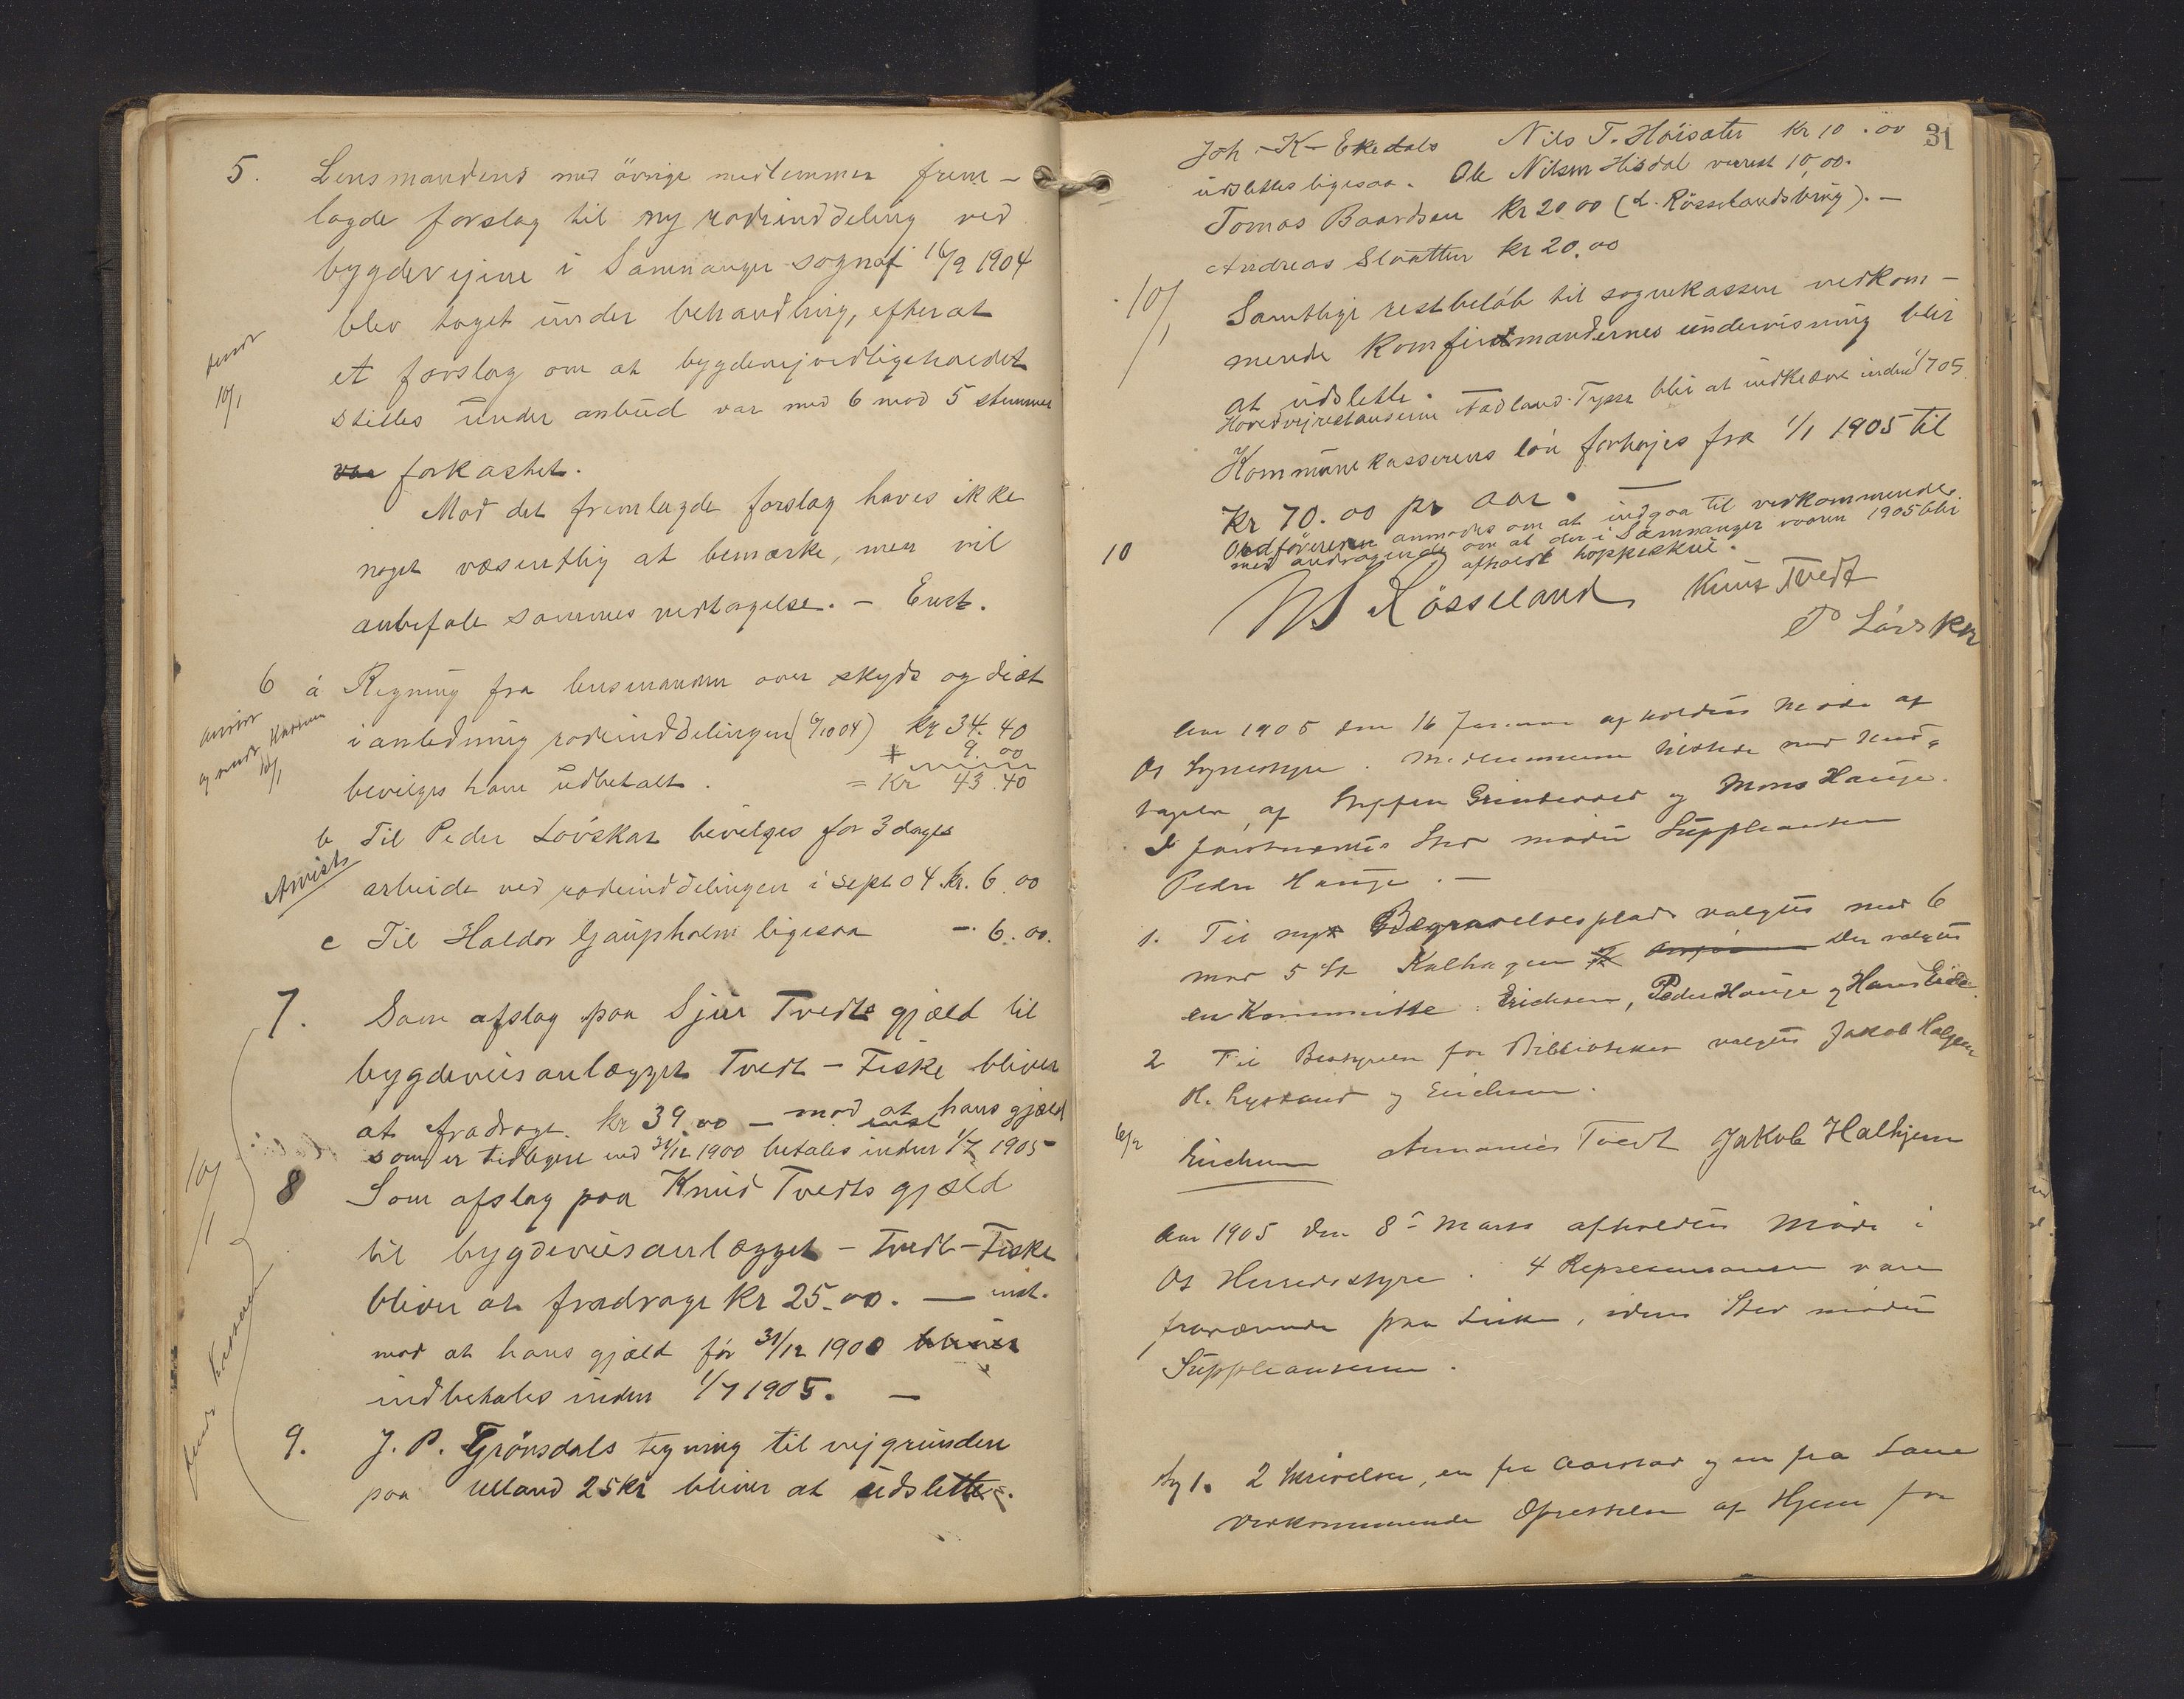 5. Lensmandens med övrige medlemmer frem-
lagde forslag til ny rodeinddeling ved
bygdevejene i Samnanger sogn af 16/9 1904
blev taget under behandling, efterat
et forslag om at bygdevejvedligeholdet
stilles under anbud var med 6 mod 5 stemmer
var forkastet.
Mod det fremlagde forslag haves ikke
noget væsentlig at bemærke, men vil
anbefale sammes vedtagelse. - Enst.
sendt
10/1
6 a Regning fra lensmanden over skyds og diæt
i anledning rodeinddelingen (6/10 04) kr 34.40
+ 9.00
bevilges ham udbetalt. = Kr 43.40
anvist
og sendt Kassereren
10/1
b Til Peder Lövskar bevilges for 3 dages
arbeide ved rodeinddelingen i sept 04. kr. 6.00
Anvist
c Til Haldor Gaupholm ligesaa -. 6.00.
7. Som afslag paa Sjur Tvedts gjæld til
bygdeveisanlægget Tvedt - Fiske bliver
at fradrage kr 39.00 - mod at hans gjæld
enst
som er tidligere end 31/12 1900 betales inden 1/7 1905
8 Som afslag paa Knud Tvedts gjæld
til bygdeveisanlægget - Tvedt - Fiske
bliver at fradrage Kr 25.00. - enst.
mod at hans gjæld för 31/12 1900 bliver
indbetales inden 1/7 1905. -
10/1
sendt Kasseren
9. J. P. Grönsdals tegning til vejgrunden
paa Ulland 25 kr bliver at udslette.
31
Joh. K. Ekedals Nils T. Höisæter Kr 10.00
udslettes ligesaa. Ole Nilsen Hisdal 10,00.
Tomas Baardsen Kr 20 00 (d. Rösselandsbrug). -
Andreas Slaatten kr 20.00
10/1 Samtlige restbelöb til sognekassen vedkom-
mende Komfirmandernes undervisning blir
at udslette.
Hovedvejrestanserne Aadland-Tysse blir at indkræve inden 1/7 05.
Kommunekasserens lön forhöjes fra 1/1 1905 til
Kr 70.00 pr aar. -
10 Ordföreren anmodes om at indgaa til vedkommende
med andragende om at der i Samnanger vaaren 1905 blir
afholdt hoppeskue.
N Rösseland Knut Tvedt
P Lövskar
Aar 1905 den 16 Januar afholdtes Möde af
Os Sognestyre. Medlemmerne tilstede med Und-
tagelse af Steffen Grindevold og Mons Hauge.
I Sted mödte Suppleanten
Peder Hauge. -
1. Til nyt Begravelsesplads valgtes med 6
mod 5 St Kolhagen Der valgtes
en Kommitte: Erichsen, Peder Hauge og Hans Eide.
2 Til Bestyrelse for Biblioteket valgtes Jakob Halhjem
H. Lyssand og Erichsen.
6/2
Erichsen Ananias Tvedt Jakob Halhjem
Aar 1905 den 8de Marts afholdtes Möde i
Os Herredsstyre. 4 Repræsentanter vare
fraværende paa Liste, idens Sted mödte
Suppleanterne.
Sag 1. 2 Skrivelser, en fra Aarstad og en fra Fane
vedkommende Oprettelse af Hjem for